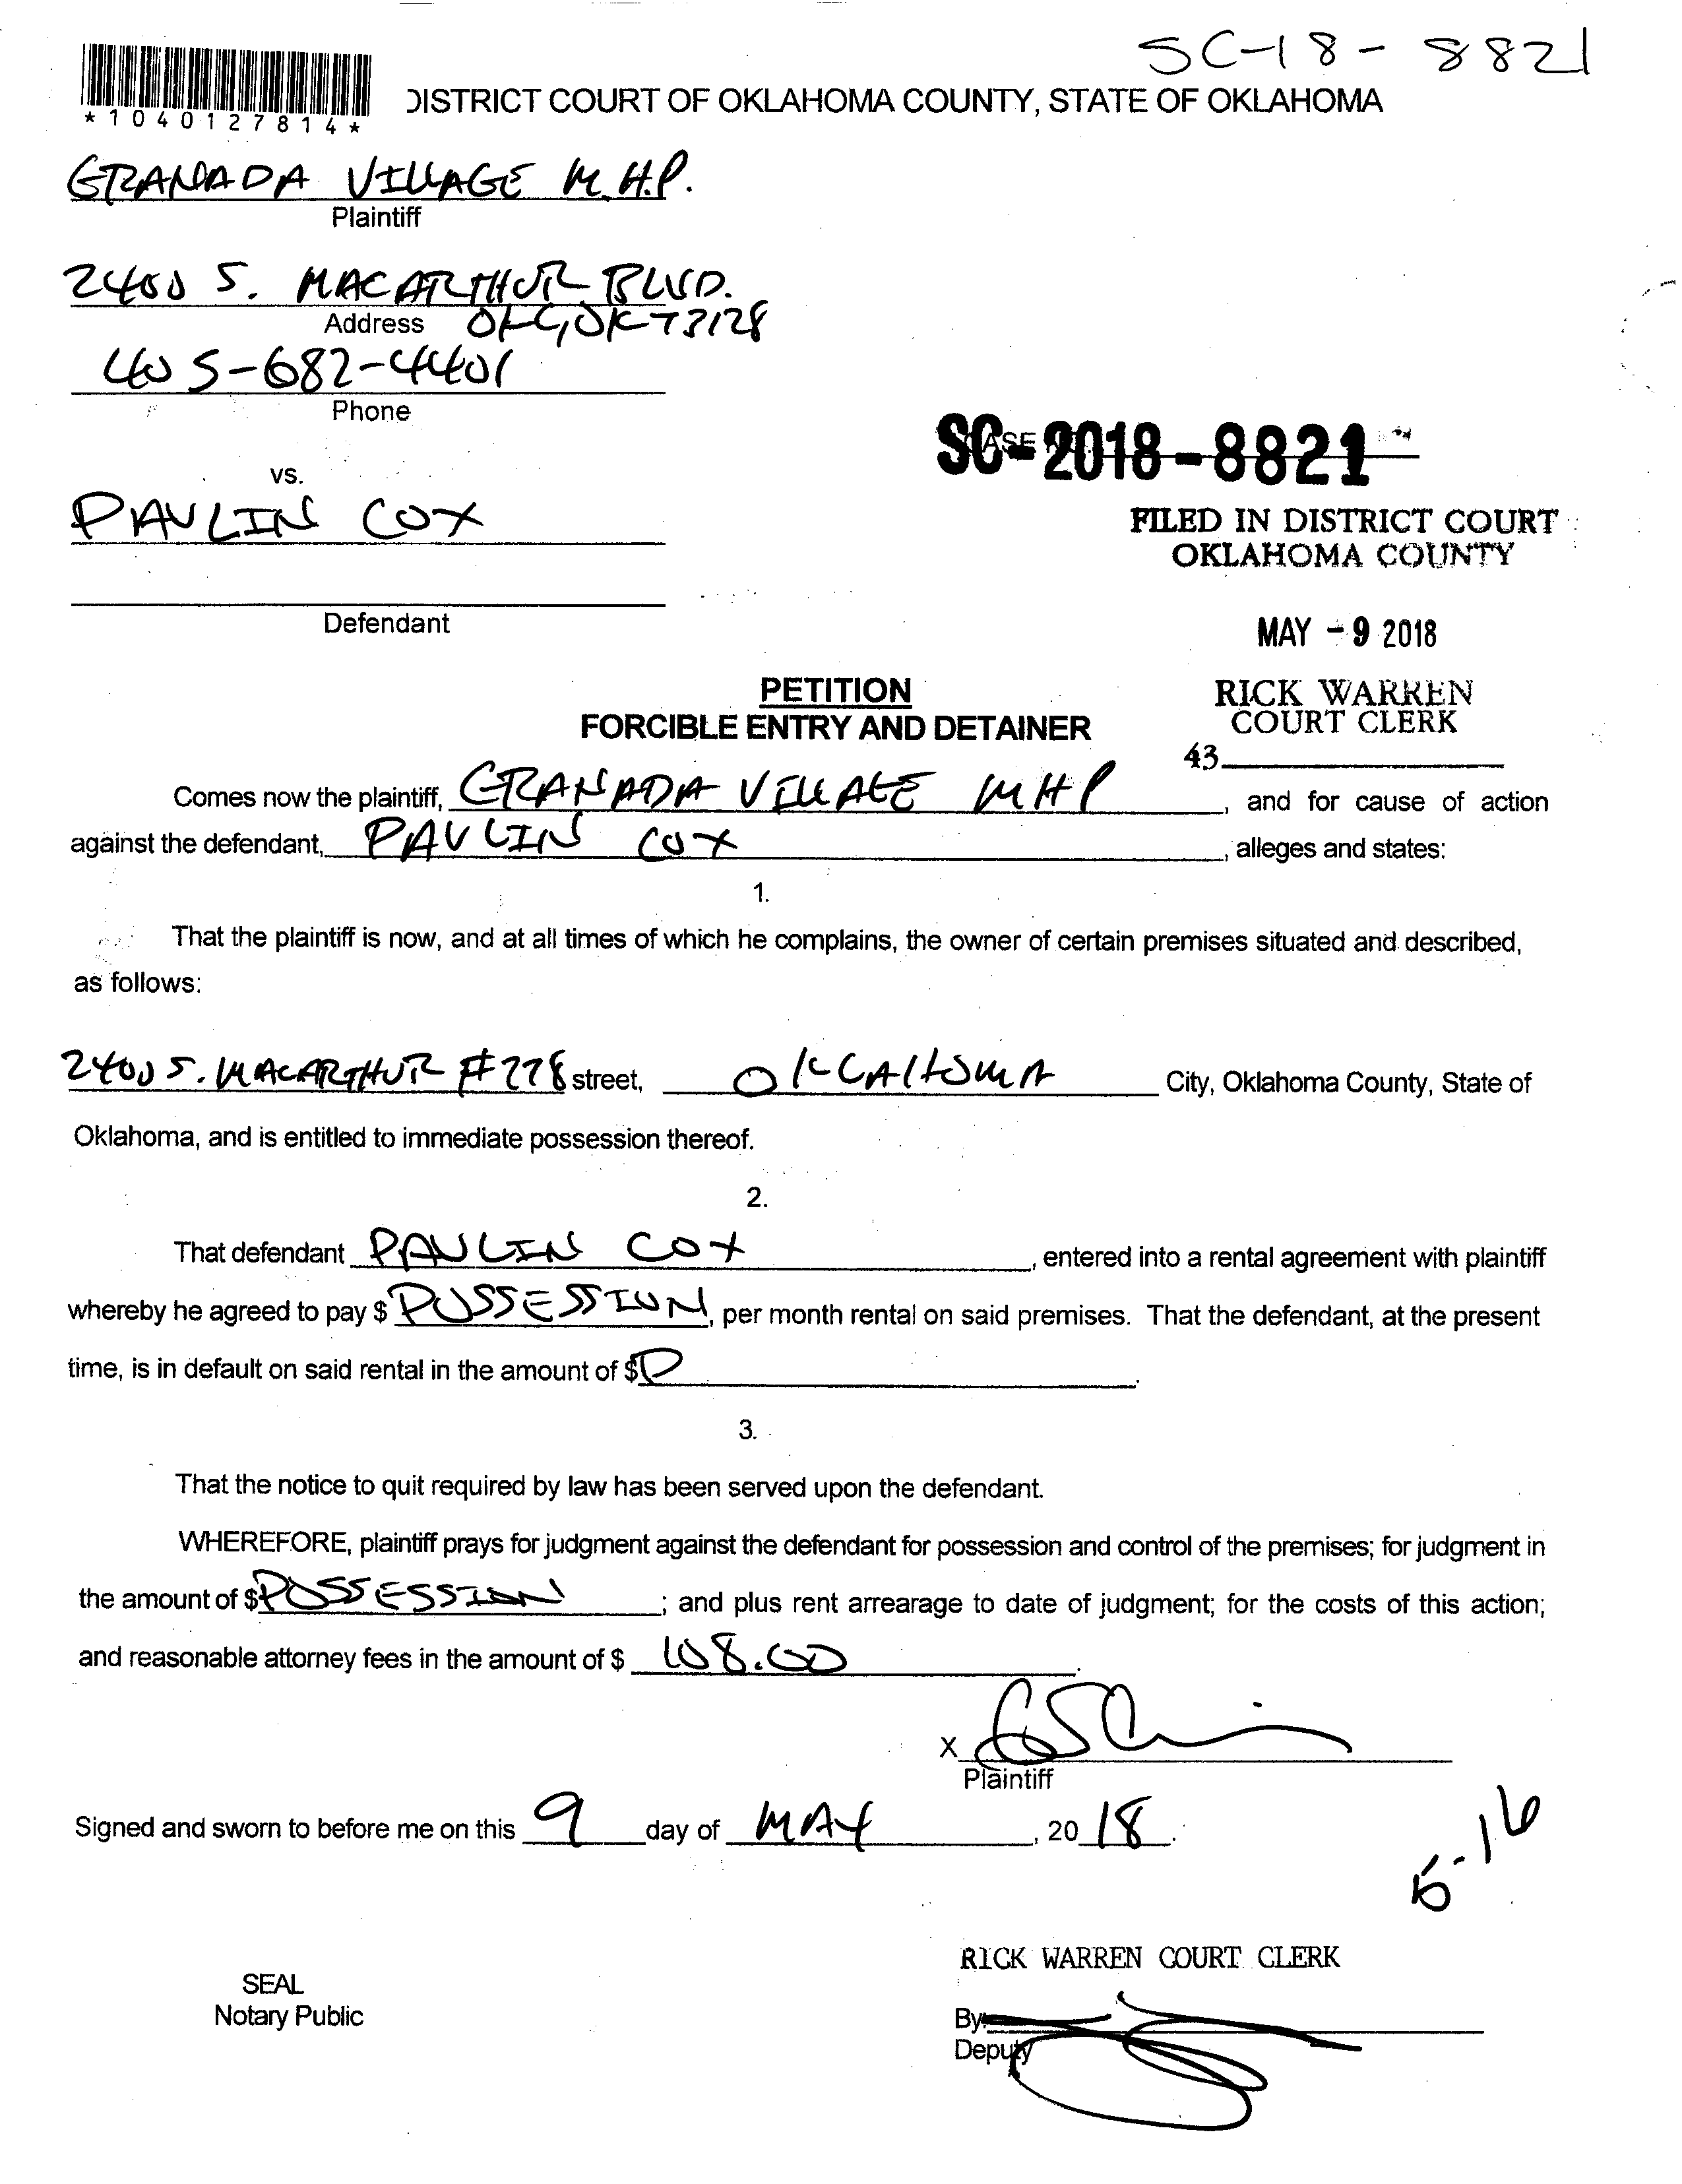 SC-18-8821
*1040127814*
DISTRICT COURT OF OKLAHOMA COUNTY, STATE OF OKLAHOMA
GRANADA VILLAGE M.H.P.
Plaintiff
2400 S. MACARTHUR BLVD.
Address OKC, OK 73128
405-682-4401
Phone
SC-2018-8821
vs.
PAULIN COX
FILED IN DISTRICT COURT
OKLAHOMA COUNTY
Defendant
MAY -9 2018
PETITION
RICK WARREN
FORCIBLE ENTRY AND DETAINER
COURT CLERK
43
Comes now the plaintiff, GRANADA VILLAGE MHP, and for cause of action
against the defendant, PAULIN COX, alleges and states:
1.
That the plaintiff is now, and at all times of which he complains, the owner of certain premises situated and described,
as follows:
2400 S. MACARTHUR # street, City, Oklahoma County, State of
Oklahoma, and is entitled to immediate possession thereof.
2.
That defendant PAULIN COX, entered into a rental agreement with plaintiff
whereby he agreed to pay $ POSSESSION, per month rental on said premises. That the defendant, at the present
time, is in default on said rental in the amount of $
3.
That the notice to quit required by law has been served upon the defendant.
WHEREFORE, plaintiff prays for judgment against the defendant for possession and control of the premises; for judgment in
the amount of $ POSSESSION; and plus rent arrearage to date of judgment; for the costs of this action;
and reasonable attorney fees in the amount of $ 108.00.
X
Plaintiff
Signed and sworn to before me on this 9 day of MAY, 2018.
5-16
RICK WARREN COURT CLERK
SEAL
Notary Public
By:
Deputy